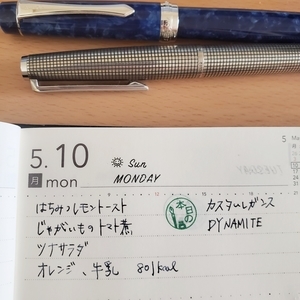 5.10
月 mon
Sun
MONDAY
はちみつレモントースト
じゃがいもの トマト煮
ツナサラダ
オレンジ、牛乳 801kcal
本日の
カスターレガンス
DYNAMITE
5